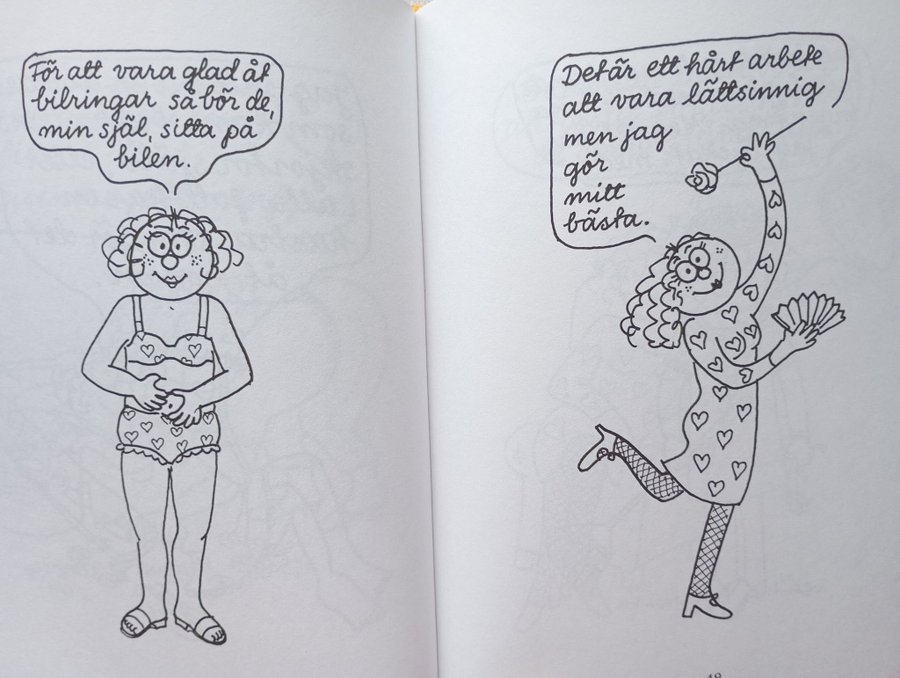 För att vara glad åt
bilringar så bör de,
min själ, sitta på
bilen.
Det är ett hårt arbete
att vara lättsinnig
men jag
gör
mitt
bästa.